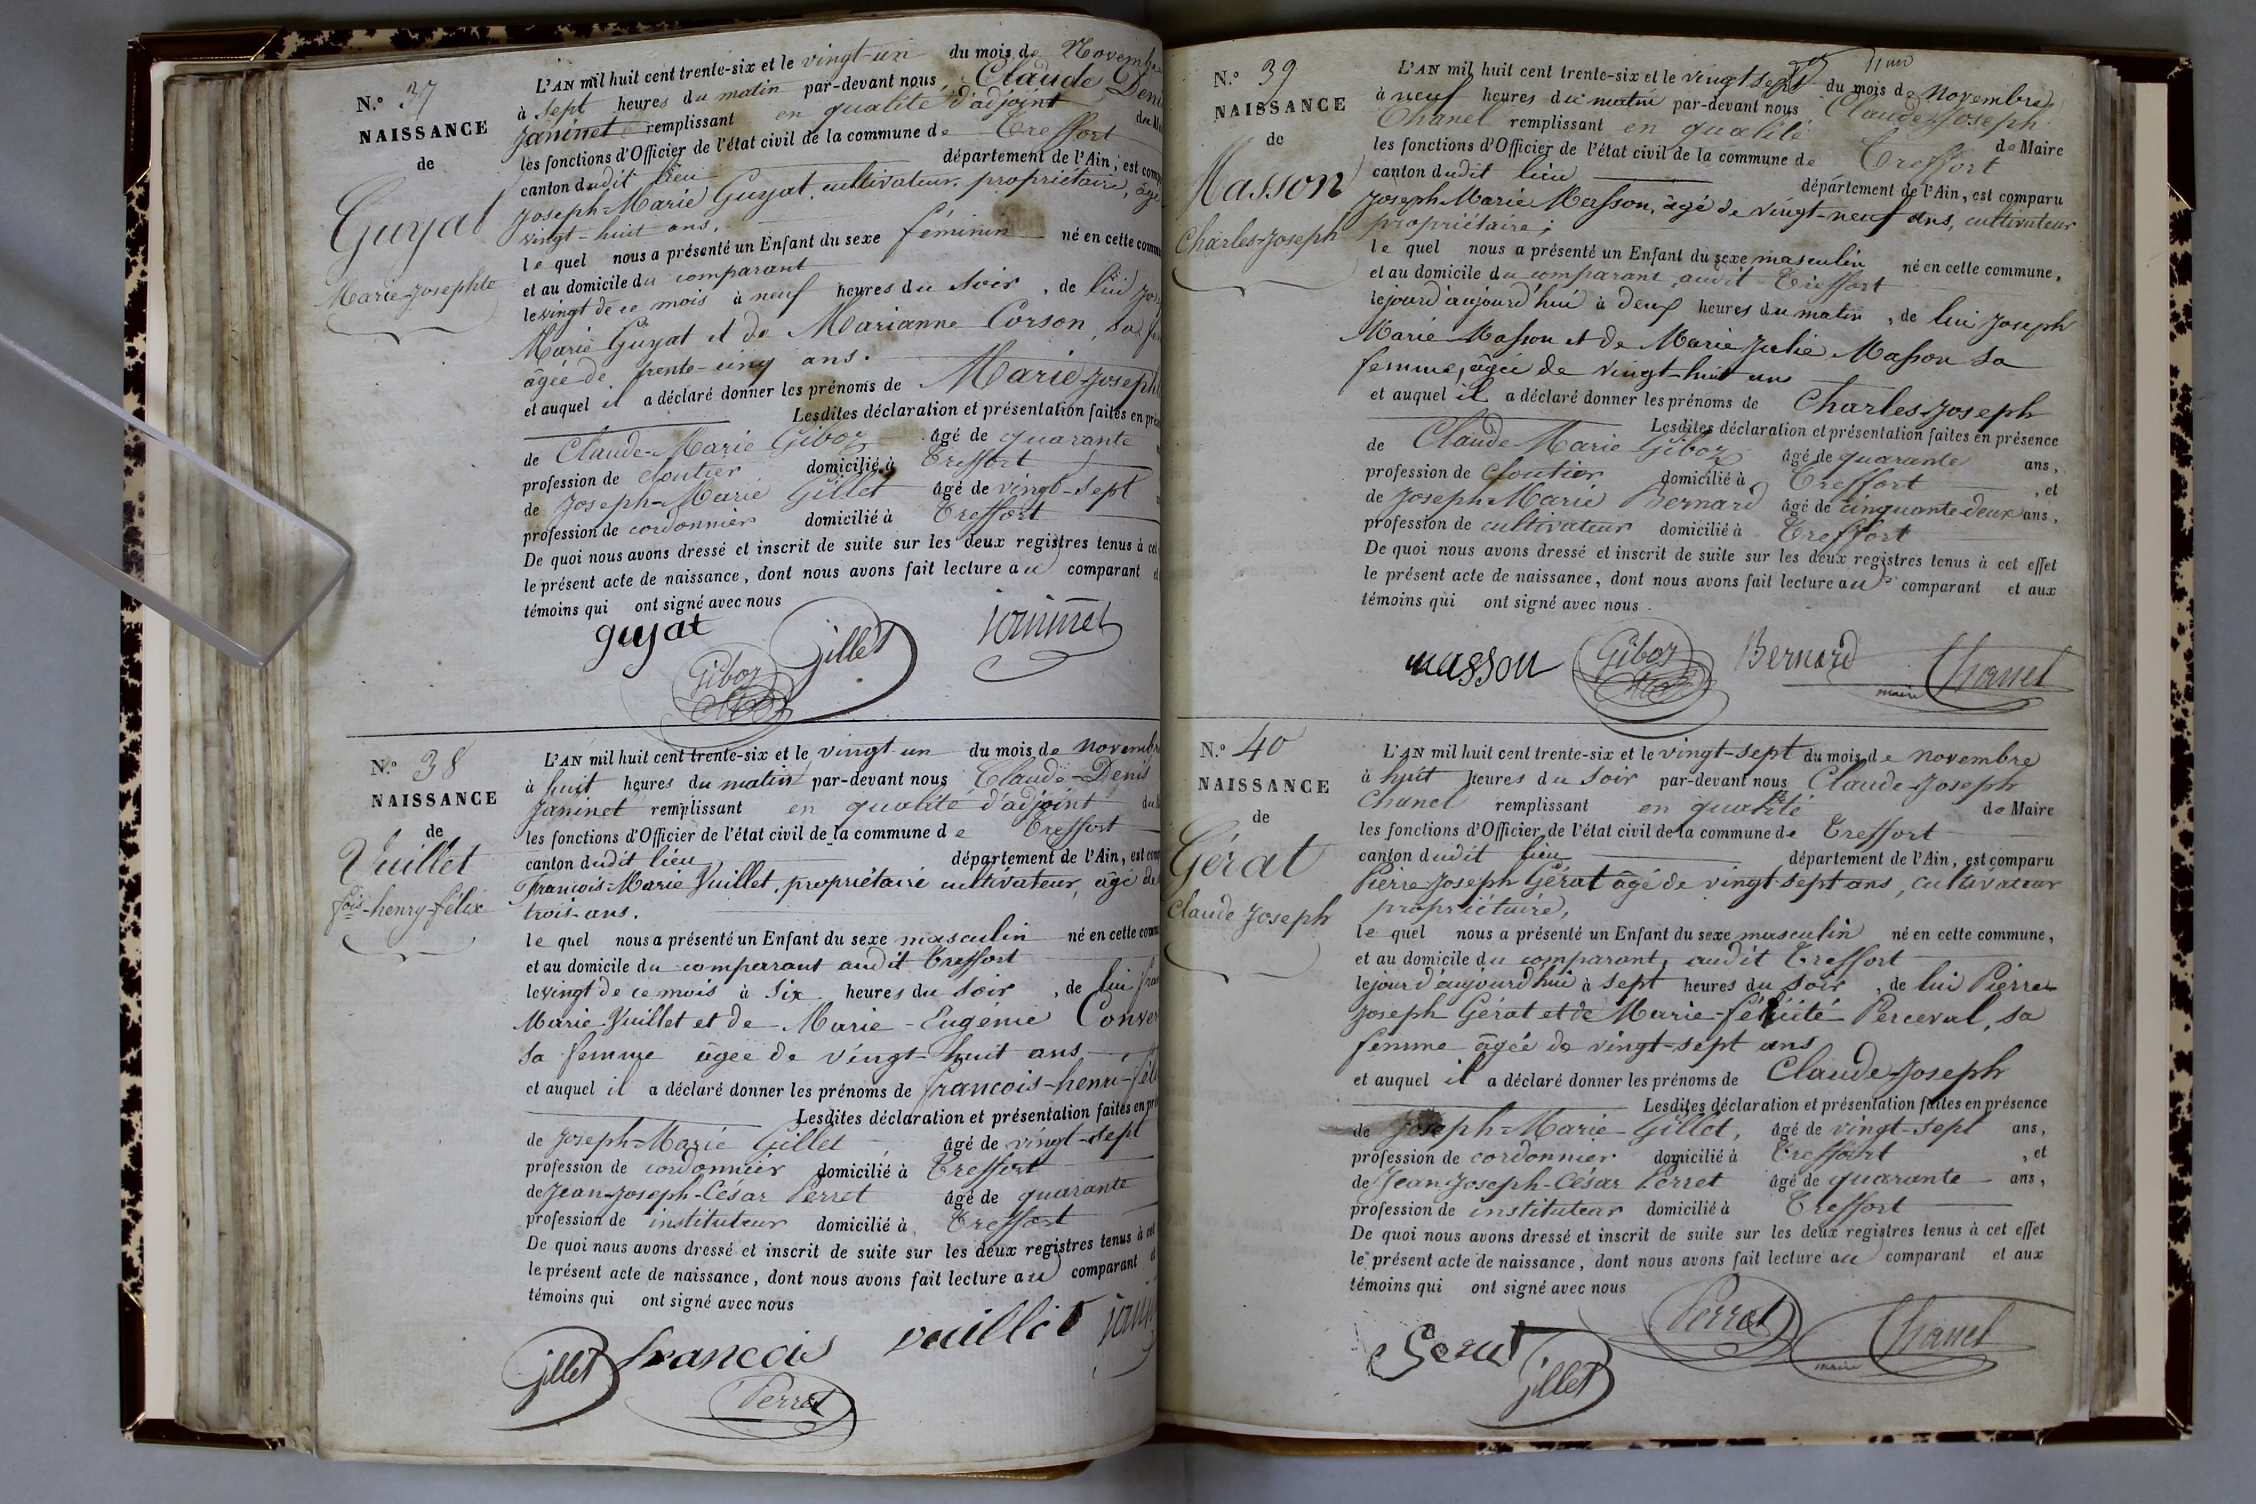 N.° 37
NAISSANCE
de
Guyat
Marie-Josephte
L'AN mil huit cent trente-six et le vingt-un du mois de Novemb
à sept heures du matin par-devant nous Claude Deni
Janinet remplissant en qualité d'adjoint
les fonctions d'Officier de l'état civil de la commune de Treffort
canton dudit lieu département de l'Ain, est comp
Joseph-Marie Guyat, cultivateur propriétaire, âgé
vingt-huit ans.
le quel nous a présenté un Enfant du sexe féminin né en cette comm
et au domicile du comparant
le vingt de ce mois à neuf heures du soir, de lui Jos
Marie Guyat et de Marianne Corson, sa fe
âgée de trente-cinq ans.
et auquel il a déclaré donner les prénoms de Marie-Joseph
Lesdites déclaration et présentation faites en pré
de Claude-Marie Giboz âgé de quarante
profession de cloutier domicilié à Treffort
de Joseph-Marie Gillet âgé de vingt-sept
profession de cordonnier domicilié à Treffort
De quoi nous avons dressé et inscrit de suite sur les deux registres tenus à cet
le présent acte de naissance, dont nous avons fait lecture au comparant et
témoins qui ont signé avec nous
guyat Giboz Gillet Janinet
N.° 38
NAISSANCE
de
Vuillet
fois-henry-félix
L'AN mil huit cent trente-six et le vingt-un du mois de novembr
à huit heures du matin par-devant nous Claude-Denis
Janinet remplissant en qualité d'adjoint du
les fonctions d'Officier de l'état civil de la commune de Treffort
canton dudit lieu département de l'Ain, est com
François-Marie Vuillet, propriétaire cultivateur, âgé de
trois ans.
le quel nous a présenté un Enfant du sexe masculin né en cette com
et au domicile du comparant audit Treffort
le vingt de ce mois à six heures du soir, de lui fra
Marie Vuillet et de Marie-Eugénie Conver
sa femme âgée de vingt-huit ans
et auquel il a déclaré donner les prénoms de françois-henri-fél
Lesdites déclaration et présentation faites en pré
de Joseph-Marie Gillet âgé de vingt-sept
profession de cordonnier domicilié à Treffort
de Jean-Joseph-César Perret âgé de quarante
profession de instituteur domicilié à Treffort
De quoi nous avons dressé et inscrit de suite sur les deux registres tenus à cet
le présent acte de naissance, dont nous avons fait lecture au comparant et
témoins qui ont signé avec nous
Gillet francois vuillet Jan
Perret
N.° 39
NAISSANCE
de
Masson
Charles-Joseph
L'AN mil huit cent trente-six et le vingt sept du mois de Novembre
à neuf heures du matin par-devant nous Claude-Joseph
Chanel remplissant en qualité de Maire
les fonctions d'Officier de l'état civil de la commune de Treffort
canton dudit lieu département de l'Ain, est comparu
Joseph Marie Masson, âgé de vingt-neuf ans, cultivateur
propriétaire;
le quel nous a présenté un Enfant du sexe masculin né en cette commune,
et au domicile du comparant, audit Treffort
le jour d'aujourd'hui à deux heures du matin, de lui Joseph
Marie Masson et de Marie Julie Masson sa
femme, âgée de vingt-huit ans
et auquel il a déclaré donner les prénoms de Charles-Joseph
Lesdites déclaration et présentation faites en présence
de Claude Marie Giboz âgé de quarante ans,
profession de cloutier domicilié à Treffort, et
de Joseph Marie Bernard âgé de cinquante deux ans,
profession de cultivateur domicilié à Treffort
De quoi nous avons dressé et inscrit de suite sur les deux registres tenus à cet effet
le présent acte de naissance, dont nous avons fait lecture au comparant et aux
témoins qui ont signé avec nous.
masson Giboz Bernard Chanel
maire
N.° 40
NAISSANCE
de
Gérat
Claude Joseph
L'AN mil huit cent trente-six et le vingt-sept du mois de novembre
à huit heures du soir par-devant nous Claude-Joseph
Chanel remplissant en qualité de Maire
les fonctions d'Officier de l'état civil de la commune de Treffort
canton dudit lieu département de l'Ain, est comparu
Pierre-Joseph Gérat âgé de vingt sept ans, cultivateur
propriétaire,
le quel nous a présenté un Enfant du sexe masculin né en cette commune,
et au domicile du comparant, audit Treffort
le jour d'aujourd'hui à sept heures du soir, de lui Pierre
Joseph Gérat et de Marie-félicité Perceval, sa
femme âgée de vingt-sept ans
et auquel il a déclaré donner les prénoms de Claude-Joseph
Lesdites déclaration et présentation faites en présence
de Joseph-Marie Gillet, âgé de vingt-sept ans,
profession de cordonnier domicilié à Treffort, et
de Jean-Joseph-César Perret âgé de quarante ans,
profession de instituteur domicilié à Treffort
De quoi nous avons dressé et inscrit de suite sur les deux registres tenus à cet effet
le présent acte de naissance, dont nous avons fait lecture au comparant et aux
témoins qui ont signé avec nous
Gillet Perret Chanel
maire